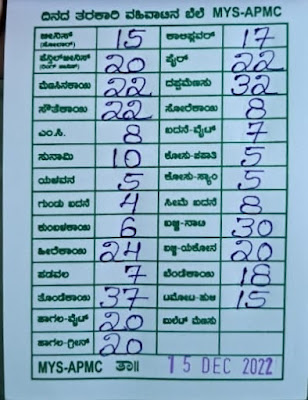 ದಿನದ ತರಕಾರಿ ವಹಿವಾಟಿನ ಬೆಲೆ MYS-APMC
ಬೀನೀಸ್ (ಸೋದಾರ್) 15 ಕಾಲಿಫ್ಲವರ್ 17
20 ಪೈರ್ 22
ಮೆಣಸಿನಕಾಯಿ 22 ದಪ್ಪಮೆಣಸು 32
ಸೌತೆಕಾಯಿ 22 ಸೋರೆಕಾಯಿ 8
ಎಂ.ಸಿ. 8 ಬದನೆ-ವೈಟ್ 7
ಸುನಾಮಿ 10 ಕೋಸು-ಕಪಾತಿ 5
ಯಳವನ 5 ಕೋಸು-ಸ್ಯಾಂ 5
ಗುಂಡು ಬದನೆ 4 ಸೀಮೆ ಬದನೆ 8
ಕುಂಬಳಕಾಯಿ 6 ಬಜ್ಜಿ-ನಾಟಿ 30
ಹೀರೆಕಾಯಿ 24 ಬಜ್ಜಿ-ಯಕೋನ 20
ಪಡವಲ 7 ಬೆಂಡೆಕಾಯಿ 18
ತೊಂಡೆಕಾಯಿ 37 ಟಮೋಟ-ಹುಳಿ 15
ಹಾಗಲ-ವೈಟ್ 20 ಬುಲೆಟ್ ಮೆಣಸು
ಹಾಗಲ-ಗ್ರೀನ್ 20
MYS-APMC ತಾ॥ 15 DEC 2022